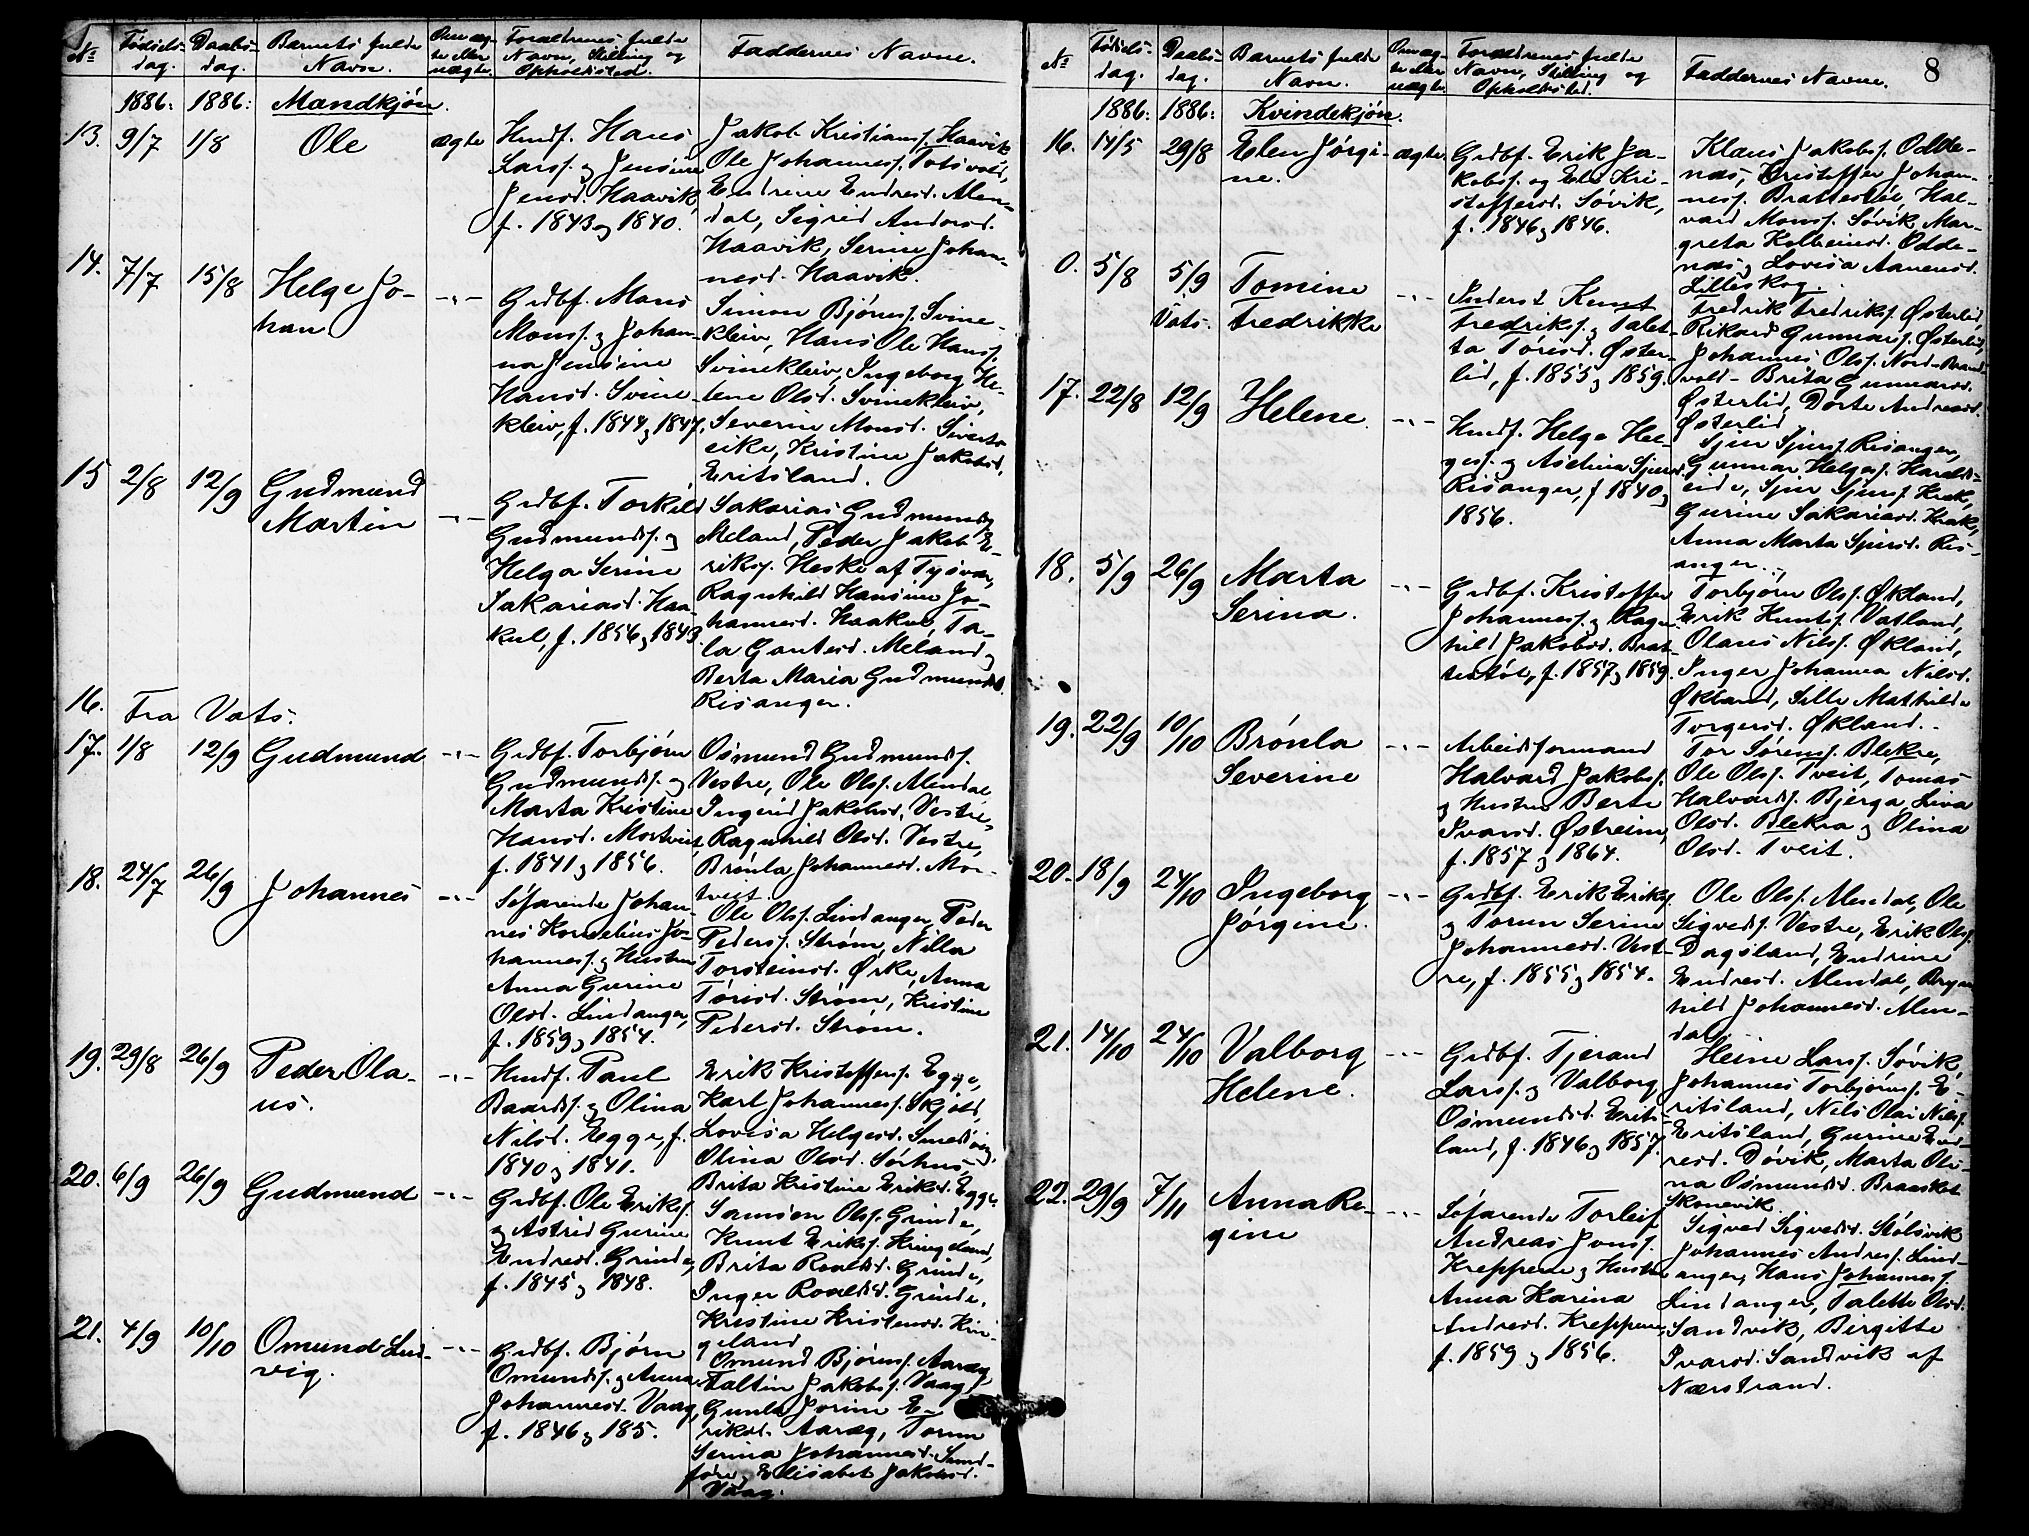 No
Fødsels-
dag.
Daabs-
dag.
Barnets fulde
Navn.
Om æg-
te eller
uægte
Forældrenes fulde
Navn, Stilling og
Opholdsted.
Faddernes Navne.
1886: 1886: Mandkjøn.
13. 9/7 1/8 Ole ægte
Husf. Hans
Larss. og Jensine
Jensd. Haavik,
f. 1843 og 1840.
Jakob Kristianss. Haavik
Ole Johanness. Totsvold,
Endrine Endresd. Alen-
dal, Sigrid Andersd.
Haavik, Serine Johan-
nesd. Haavik.
14. 7/7 15/8 Helge Jo-
han -"-
Grdbf. Mons
Monss. og Johan-
na Jensine
Hansd. Svine-
kleiv, f. 1844 og 1847.
Simon Bjørnss. Svine-
kleiv, Hans Ole Hanss.
Svinekleiv, Ingeborg He-
lene Olsd. Svinekleiv,
Severine Monsd. Siverts-
eike, Kristine Jakobsd.
Eritsland.
15 2/8 12/9 Gudmund
Martin -"-
Grdbf. Torkild
Gudmunds. og
Helga Serine
Sakariasd. Haa-
kul, f. 1856 og 1843.
Sakarias Gudmunds.
Meland, Peder Jakob E-
rikss. Heske af Tysvær,
Ragnhild Hansine Jo-
hannesd. Haakul, Ta-
la Gautesd. Meland og
Berta Maria Gudmundsd.
Risanger.
16. Fra Vats.
17. 1/8 12/9 Gudmund -"-
Grdbf. Torbjørn
Gudmunds. og
Marta Kristine
Hansd. Mortveit,
f. 1841 og 1856.
Osmund Gudmunds.
Vestre, Ole Olss. Alendal,
Ingerid Jakobsd. Vestre,
Ragnhild Olsd. Vestre,
Brønla Johannesd. Mor-
tveit.
18. 24/7 26/9 Johannes -"-
Søfarende Johan-
nes Kornelius Jo-
hanness. og Hustru
Anna Gurine
Olsd. Lindanger,
f. 1859 og 1854.
Ole Olss. Lindanger, Peder
Pederss. Strøm, Nilla
Torsteinsd. Ørke, Anna
Torisd. Strøm, Kristine
Pedersd. Strøm.
19. 29/8 26/9 Peder Ola-
us. -"-
Husf. Paul
Baards. og Olina
Nilsd. Egge, f.
1840 og 1841.
Erik Kristoffers. Egge,
Karl Johanness. Skjold,
Lovisa Helgesd. Smedsvig,
Olina Olsd. Sørhus,
Brita Kristine Eriksd. Egge.
20. 6/9 26/9 Gudmund -"-
Grdbf. Ole Erikss.
og Astrid Gurine
Endresd. Grinde,
f. 1845 og 1848.
Samson Olss. Grinde,
Knut Erikss. Kringeland,
Brita Roaldsd. Grinde,
Inger Roaldsd. Grinde,
Kristine Kristensd. Krin-
geland
21. 4/9 10/10 Omund Lud-
vig. -"-
Grdbf. Bjørn
Omunds. og Anna
Johannesd. Vaag,
f. 1846 og 185.
Omund Bjørnss. Aaræg,
Faltin Jakobs. Vaag,
Gunla Jorine E-
riksd. Aaræg, Torun
Serina Johannesd. Sund-
føre, Elisabet Jakobsd.
Vaag.
8
No
Fødsels-
dag.
Daabs-
dag.
Barnets fulde
Navn.
Om æg-
te eller
uægte
Forældrenes fulde
Navn, Stilling og
Opholdsted.
Faddernes Navne.
1886: 1886: Kvindekjøn.
16. 14/5 29/8 Elen Jørgi-
ne. ægte
Grdbf. Erik Ja-
kobs. og Eli Kri-
stoffersd. Søvik,
f. 1846 og 1846.
Klaus Jakobs. Odde-
næs, Kristoffer Johan-
ness. Brattestøl, Hal-
vard Monss. Søvik, Mar-
greta Kolbeinsd. Odde-
næs og Lovisa Aanensd.
Lilleskog.
0. 5/8 5/9
Vats.
Tomine
Fredrikke -"-
Inderst Knut
Fredrikss. og Talet-
ta Torisd. Øster-
lid, f. 1855 og 1859.
Fredrik Fredrikss. Østerlid,
Rikard Gunnars. Østerlid,
Johannes Olss. Nord-Brand-
vold, Brita Gunnarsd.
Østerlid, Dorte Andreasd.
Østerlid
17. 22/8 12/9 Helene. -"-
Husf. Helge Hel-
gess. og Aselina Sjursd.
Risanger, f 1840 og
1856.
Sjur Sjurss. Risanger,
Gunnar Helges. Harolds-
eide, Sjur Sjurss. Krak,
Gurine Sakariasd. Krak,
Anna Marta Sjursd. Ris-
anger.
18. 5/9 26/9 Marta
Serina. -"-
Grdbf. Kristoffer
Johanness. og Ragn-
hild Jakobsd. Brat-
testøl, f. 1857 og 1859.
Torbjørn Olss. Økland,
Erik Knuts. Vatland,
Olaus Nilss. Økland,
Inger Johanna Nilsd.
Økland, Sille Mathilde
Torgersd. Økland.
19. 22/9 10/10 Brønla
Severine -"-
Arbeidsformand
Halvard Jakobs.
og Hustru Berte
Ivarsd. Østreim,
f. 1857 og 1864.
Tor Sørens. Blekra,
Ole Olss. Tveit, Tomas
Halvards. Bjerga, Liva
Olsd. Blekra og Olina
Olsd. Tveit.
20. 18/9 24/10 Ingeborg
Jørgine. -"-
Grdbf. Erik Erikss.
og Torun Serine
Johannesd. Vest-
re, f. 1855 og 1854.
Ole Olss. Alendal, Ole
Sigveds. Vestre, Erik Olss.
Dagsland, Endrine
Endresd. Alendal, Bryn-
hild Johannesd. Alen-
dal.
21. 14/10 24/10 Valborg
Helene. -"-
Grdbf. Tjerand
Larss. og Valborg
Osmundsd. Erits-
land, f. 1846 og 1857.
Heine Larss. Søvik,
Johannes Torbjørnss. E-
ritsland, Nils Olai Nilss.
Eritsland, Gurine End-
resd. Døvik, Marta Oli-
na Osmundsd. Braaskot
Skonevik.
22. 29/9 7/11 Anna Re-
gine -"-
Søfarende Torleif
Andreas Jonss.
Kreppene og Hustru
Anna Karina
Andresd. Kreppene,
f. 1859 og 1856.
Sigved Sigveds. Stølsvik
Johannes Andress. Lind-
anger, Hans Johanness.
Lindanger, Talette Olsd.
Sandvik, Birgitte
Ivarsd. Sandvik af
Nærstrand.